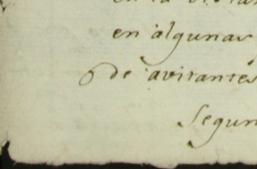 en algunas
de avitantes
Segun